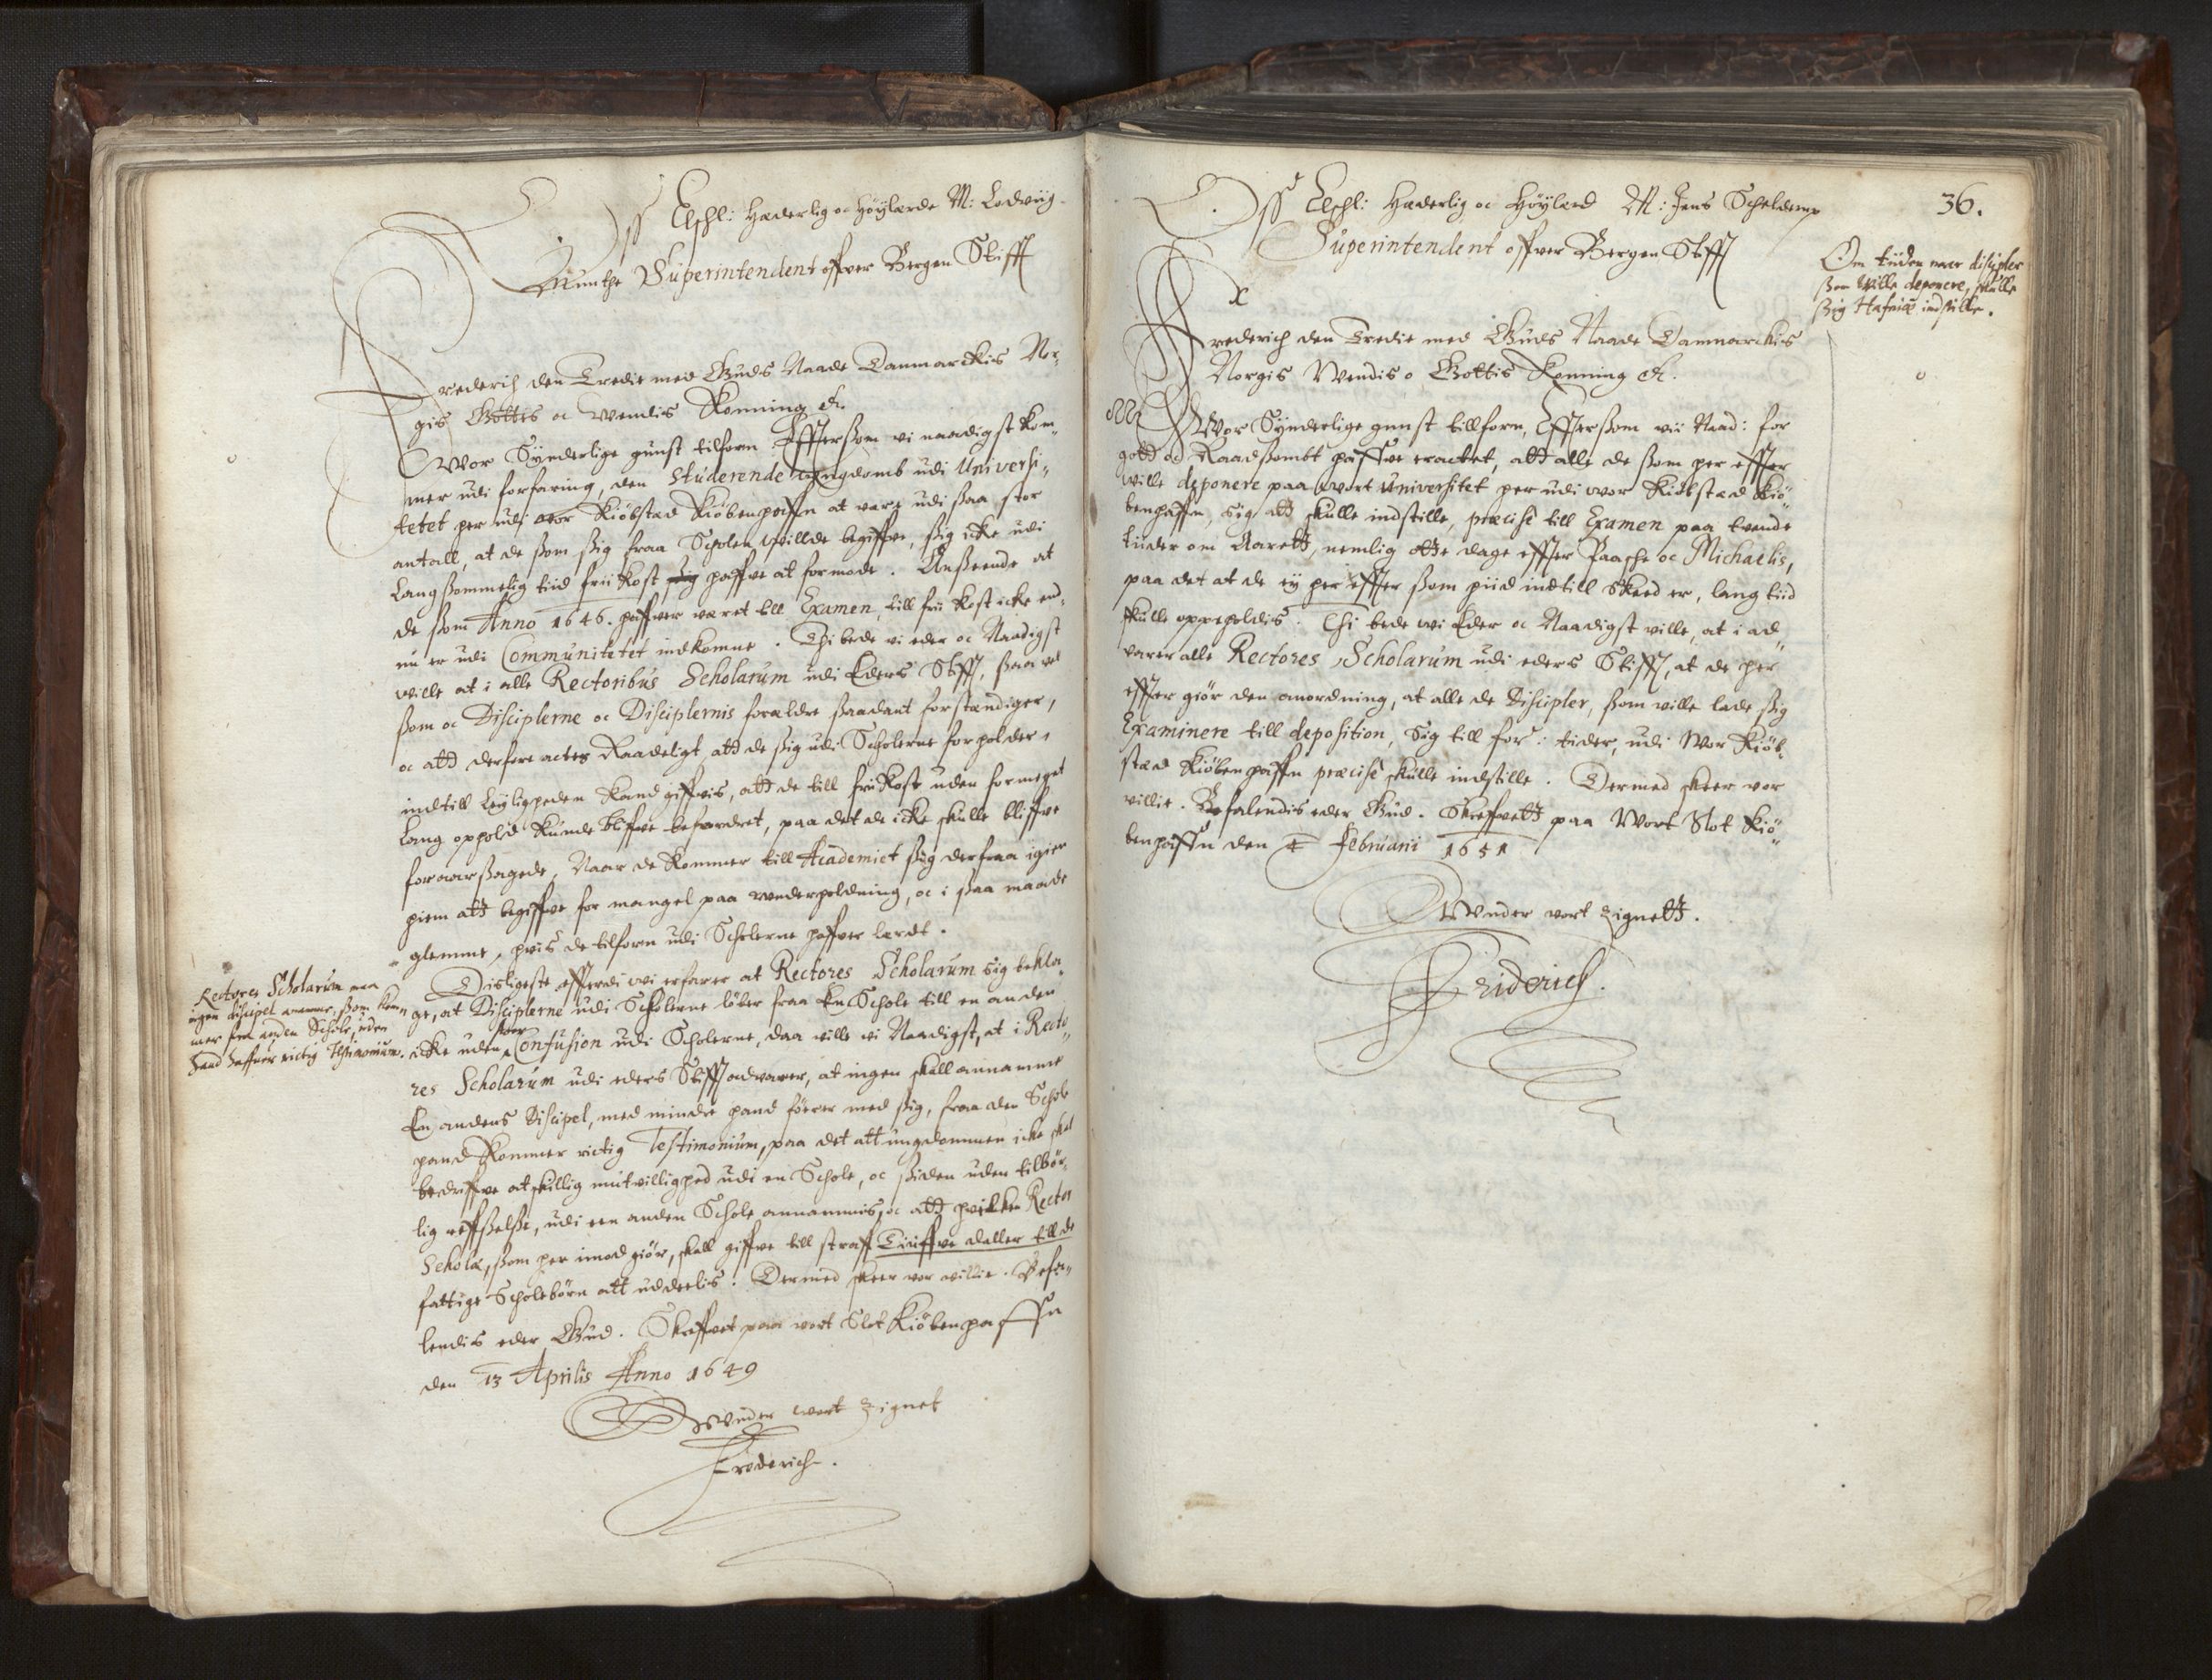 Oss Elschl: Hæderlig oc Høylærde M: Lodwiig
Munthe Superintendent offver Bergen Stifft
Frederich den Tredie med Guds Naade Danmarckis Nor¬
gis Gottis oc Vendis Konning &c.
Wor Synderlige gunst tilforn. Effterssom vi naadigst kom¬
mer udi forfaring, den Studerende Ungdomb udi Universi¬
tetet her udi vor Kiøbsted Kiøbenhaffn at være udi ssaa stor
antall, at de ssom ssig fraa Scholen willde begiffve, ssig icke udi
Langssommelig tiid frii kost haffve at formode. Ansseende at
de ssom Anno 1646. haffver været till Examen, till frii kost icke end¬
nu er udi Communitetet indkomne. Thi bede vi eder oc Naadigst
wille at i alle Rectoribus Scholarum udi Eders Stifft, ssaa vel
ssom oc Disciplerne oc Disciplernis forældre ssaadant forstendiger,
oc att derfore actes Raadeligt att de ssig udi Scholerne forholder,
indtill Leyligheden kand giffvis, att de till frii kost uden for meget
lang ophold kunde bliffve befordret, paa det de icke skulle bliffve
foraarssagede, Naar de kommer till Academiet ssig derfraa igien
hiem att begiffve for mangel paa underholdning, oc i ssaa maade
glemme, hvis de tilforn udi Scholerne haffver lærdt.
Disligeste effterdi wi erfarer at Rectores Scholarum sig bekla¬
ge, at Disciplerne udi Scholerne løber fraa En Schole till en anden
icke uden stoer Confusion udi Scholerne, daa ville vi Naadigst, at i Recto¬
res Scholarum udi eders Stifft advarer, at ingen skall annamme
En andens Discipel, med mindre hand fører med ssig, fraa den Schole
hand kommer rictig Testimonium, paa det att ungdommen icke skal
bedriffve atskillig mutvillighed udi en Schole, oc ssiden uden tilbør¬
lig reffsselsse, udi een anden Schole annammis, oc att hvilken Rector
Scholæ, ssom her imod giør, skall giffve till straff Tiuffve daller till de
fattige Scholebørn att uddeelis. Dermed skeer vor villie. Befa¬
lendis eder Gud. Skreffvet paa vort Slot Kiøbenhaffn
den 13 Aprilis Anno 1649
Under wort Zignet
Frederich.
Rectores Scholarum maa
ingen discipel annamme, ssom kom
mer fra anden Schole, uden
hand haffuer rictig Testimonium.
36.
Oss Elschl: Hæderlig oc Høylærd M: Jens Schelderup
Superintendent offver Bergen Stifft
Om tiiden naar discipler
ssom wille deponere, skulle
ssig Hafniæ indstille.
Frederich den Tredie med Guds Naade Danmarckis
Norgis Wendis oc Gottis Konning &c.
Wor Synderlige gunst tillforn, Effterssom vii Naad: for
gott oc Raadssombt haffve eractet, att alle de ssom her effter
wille deponere paa wort Universitet her udi wor Kiøbsted Kiø¬
benhaffn, sig att skulle indstille, præcisè till Examen paa tvende
tiider om Aarett, nemlig otte dage effter Paasche oc Michaelis,
paa det at de ey her effter ssom hiid indtill skeed er, lang tiid
skulle oppeholdis. Thi bede wi Eder oc Naadigst ville, at i ad¬
varer alle Rectores Scholarum udi eders Stifft, at de her
effter giør den anordning, at alle de Discipler, ssom ville lade ssig
Examinere till deposition, Sig till for: tider, udi Wor Kiøb¬
sted Kiøbenhaffn præcisè skulle indstille. Dermed skeer vor
villie. Befalendis eder Gud. Skreffvett paa Wort Slot Kiø¬
benhaffn den 4 Februarii 1651
Under vort Zignett.
Friderich.